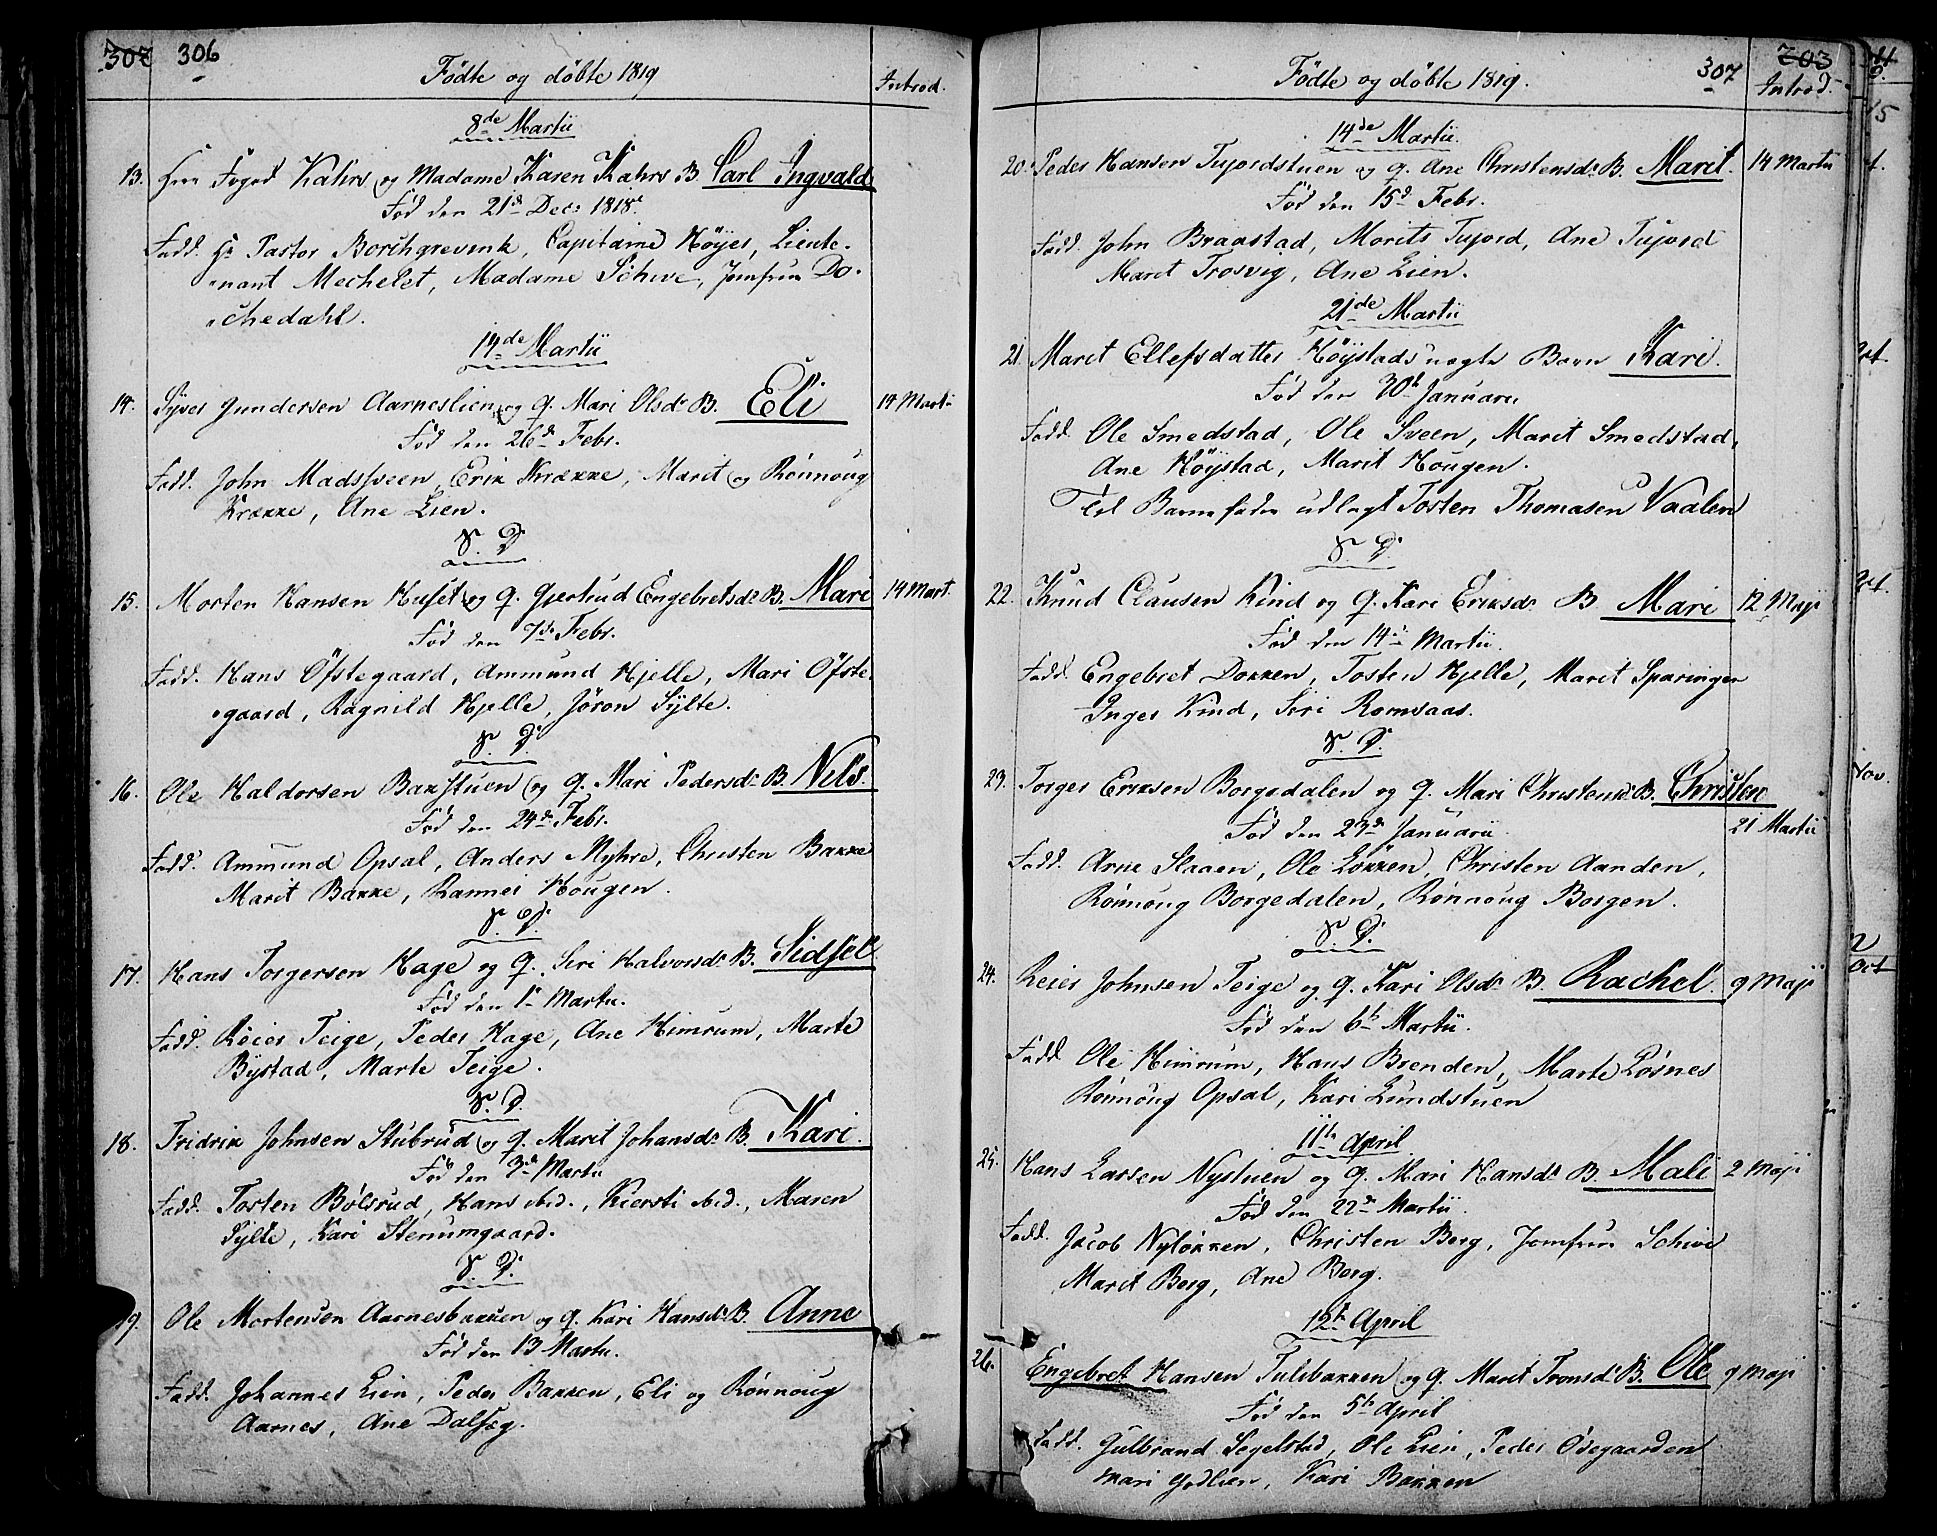 307 306
Födte og döbte 1819
Introd.
8de Martii
13. Herr Foged Kahrs og Madame Karen Kahrs B. Carl Ingvald
Föd den 21d Decr 1818.
Fadd. Hr Pastor Borchgrevink, Capitaine Höyer, Lieute-
nant Mechelet, Madame Schive, Jomfrue Do-
chedahl.
14de Martii
14. Syver Gundersen Aarneslien og q. Mari Olsdr B. Eli 14 Martii
Föd den 26d Febr.
Fadd. John Madssveen, Erik Krække, Marit og Rönnoug
Krække, Ane Lien.
S. D.
15. Morten Hansen Huset og q. Gjertrud Engebretsdr B. Mari 14 Mart.
Föd den 7de Febr.
Fadd. Hans Öfstegaard, Ammund Hjelle, Mari Öfste-
gaard, Ragnild Hjelle, Jöron Sylte.
S. D.
16. Ole Haldorsen Bakstuen og q. Mari Pedersdr B. Nels.
Föd den 24d Febr.
Fadd. Ammund Opsal, Anders Myhre, Christen Bakke
Marit Bakke, Rannei Hougen.
S. D.
17. Hans Torgersen Hage og q. Siri Halvorsdr B. Sidsel
Föd den 1d Martii.
Fadd. Reier Teige, Peder Hage, Ane Himrum, Marte
Bystad, Marte Teige.
S. D.
18. Fridrik Johnsen Stubrud og q. Marit Johansdr B. Kari.
Föd den 3d Martii
Fadd. Tosten Bölsrud, Hans ibid., Kiersti ibid., Maren
Sylte, Kari Stenumgaard.
S. D.
19. Ole Mortensen Aarnesbakken og q. Kari Hansdr B. Anne
Föd den 13 Martii.
Fadd. Johannes Lien, Peder Bakken, Eli og Rönnoug
Aarnes, Ane Dalseg.
Födte og döbte 1819.
307 203
Introd.
14de Martii.
20. Peder Hansen Tujordstuen og q. Ane Christensdr B. Marit. 14 Martii
Föd den 15d Febr.
Fadd. John Braastad, Morits Tujord, Ane Tujord
Maret Trosvig, Ane Lien.
21de Martii
21. Marit Ellefsdatter Höystads uægte Barn Kari.
Föd den 30d Januarii
Fadd. Ole Smedstad, Ole Sveen, Marit Smedstad,
Ane Höystad, Marit Hougen.
Til Barnefader udlagt Tosten Thomasen Vaalen
S. D.
22. Knud Clausen Kind og q. Kari Eriksdr B. Mari 12 Maji
Föd den 14d Martii.
Fadd. Engebret Dokken, Tosten Hjelle, Marit Sparinger
Inger Kind, Siri Romsaas.
S. D.
23. Torger Eriksen Borgedalen og q. Mari Christensdr B. Christen
Föd den 23d Januarii. 21 Martii
Fadd. Arne Slaaen, Ole Lökken, Christen Aanden,
Rönnoug Borgedalen, Rönnoug Borgen.
S. D.
24. Reier Johnsen Teige og q. Kari Olsdr B. Rachel. 9 Maji
Föd den 6h Martii.
Fadd. Ole Himrum, Hans Brenden, Marte Lösnes
Rönnoug Opsal, Kari Lundstuen
11te April
25. Hans Larsen Nystuen og q. Mari Hansdr B. Mali 2 Maji
Föd den 22d Martii.
Fadd. Jacob Nylökken, Christen Borg, Jomfrue Schive
Marit Borg, Ane Borg.
12te April
26. Engebret Hansen Tulibakken og q. Marit Tronsdr B. Ole 9 Maji
Föd den 5te April
Fadd. Gulbrand Segelstad, Ole Lien, Peder Ödegaarden
Mari Godlien, Kari Bakken
15
Nov.
Oct